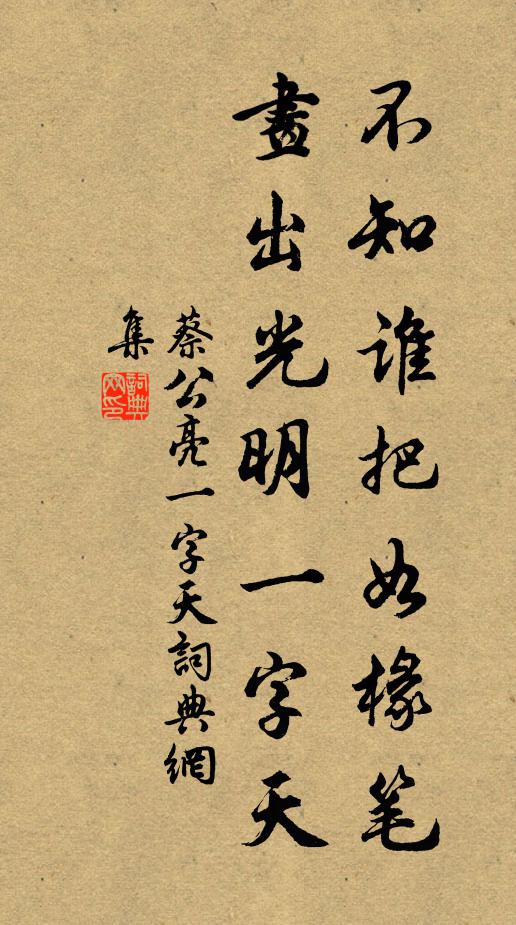 不知谁把如椽笔
畫出光明一字天
蔡公亮一字天詞典網
集
詞典
网印